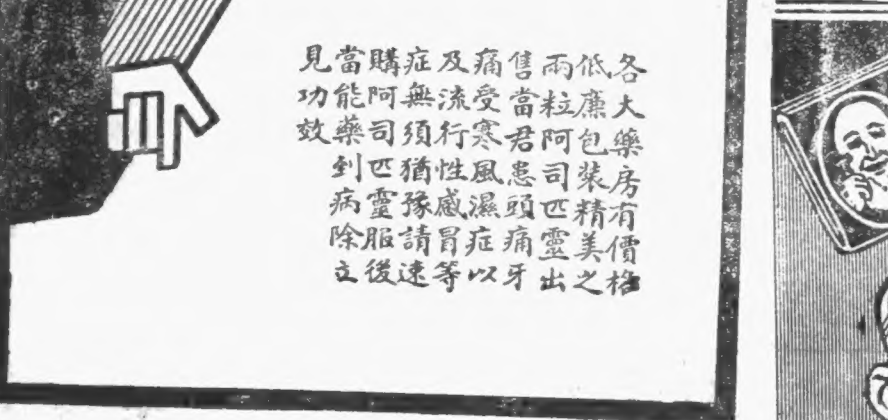 各大藥房有價格
低廉包裝精美之
兩粒阿司匹靈出
售當君患頭痛牙
痛受寒風濕症以
及流行性感冒等
症無須猶豫請速
購阿司匹靈服後
當能藥到病除立
見功效